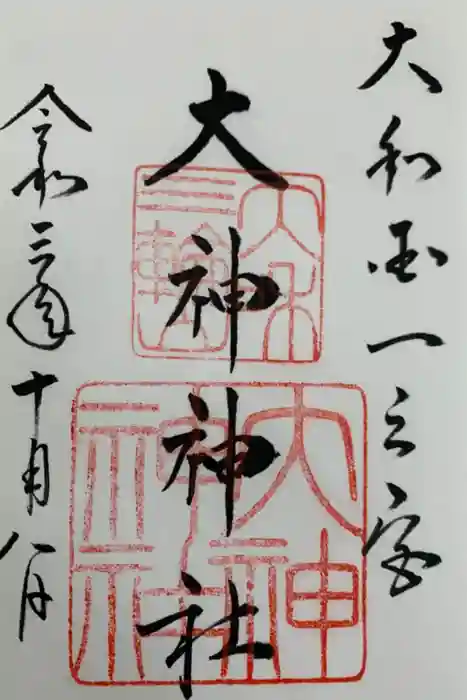 大和国一之宮
大神神社
令和三年十月八日
大神神社